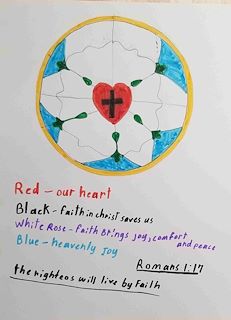 Red - our heart
Black - faith in christ saves us
White Rose - faith Brings joy, comfort
and peace
Blue - heavenly joy
Romans 1:17
the righteos will live by Faith